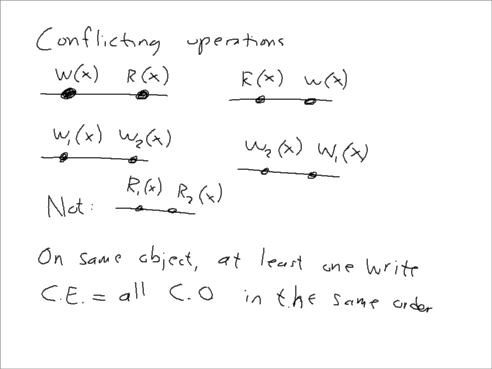 Conflicting operations
W(x) R(x) R(x) W(x)
W₁(x) W₂(x) W₂(x) W₁(x)
Not: R₁(x) R₂(x)
On same object, at least one write
C.E. = all C.O in the same order